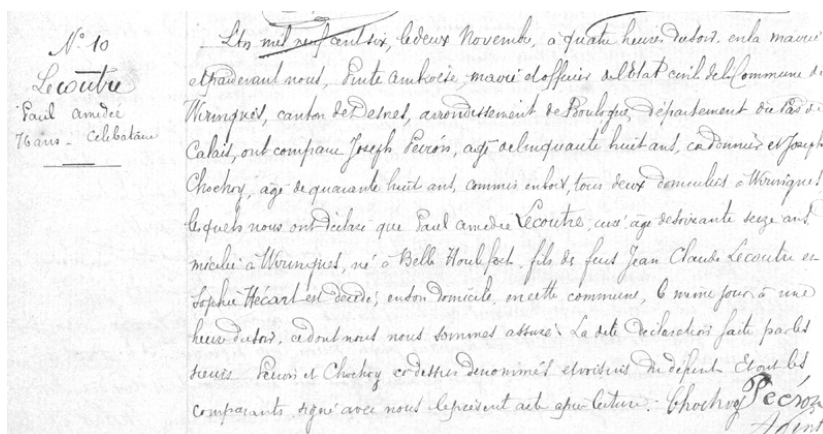 N° 10
Lecoutre
Paul Amédée
76 ans - Célibataire
L'an mil neuf cent six, le deux Novembre, à quatre heure du soir, en la mairie
et par devant nous, Ambroise, maire et officier de l'État civil de la Commune de
Wirwignes, canton de Desvres, arrondissement de Boulogne, département du Pas de
Calais, ont comparu Joseph Peiron, agé de cinquante huit ans, cordonnier et Joseph
Chochoy, age de quarante huit ans, commis en bois, tous deux domiciliés à Wirwignes
lesquels nous ont déclaré que Paul Amédée Lecoutre, curé, age de soixante seize ans
micilié à Wirwignes, né à Belle Houllefort, fils des feus Jean Claude Lecoutre et
Sophie Hécart est décédé, en son domicile, en cette commune, le même jour à une
heure du soir, ce dont nous nous sommes assuré. La dite déclaration faite par les
sieurs Peiron et Chochoy ci dessus dénommés et voisins du défunt. Et ont les
comparants, signé avec nous le présent acte après lecture. Chochoy